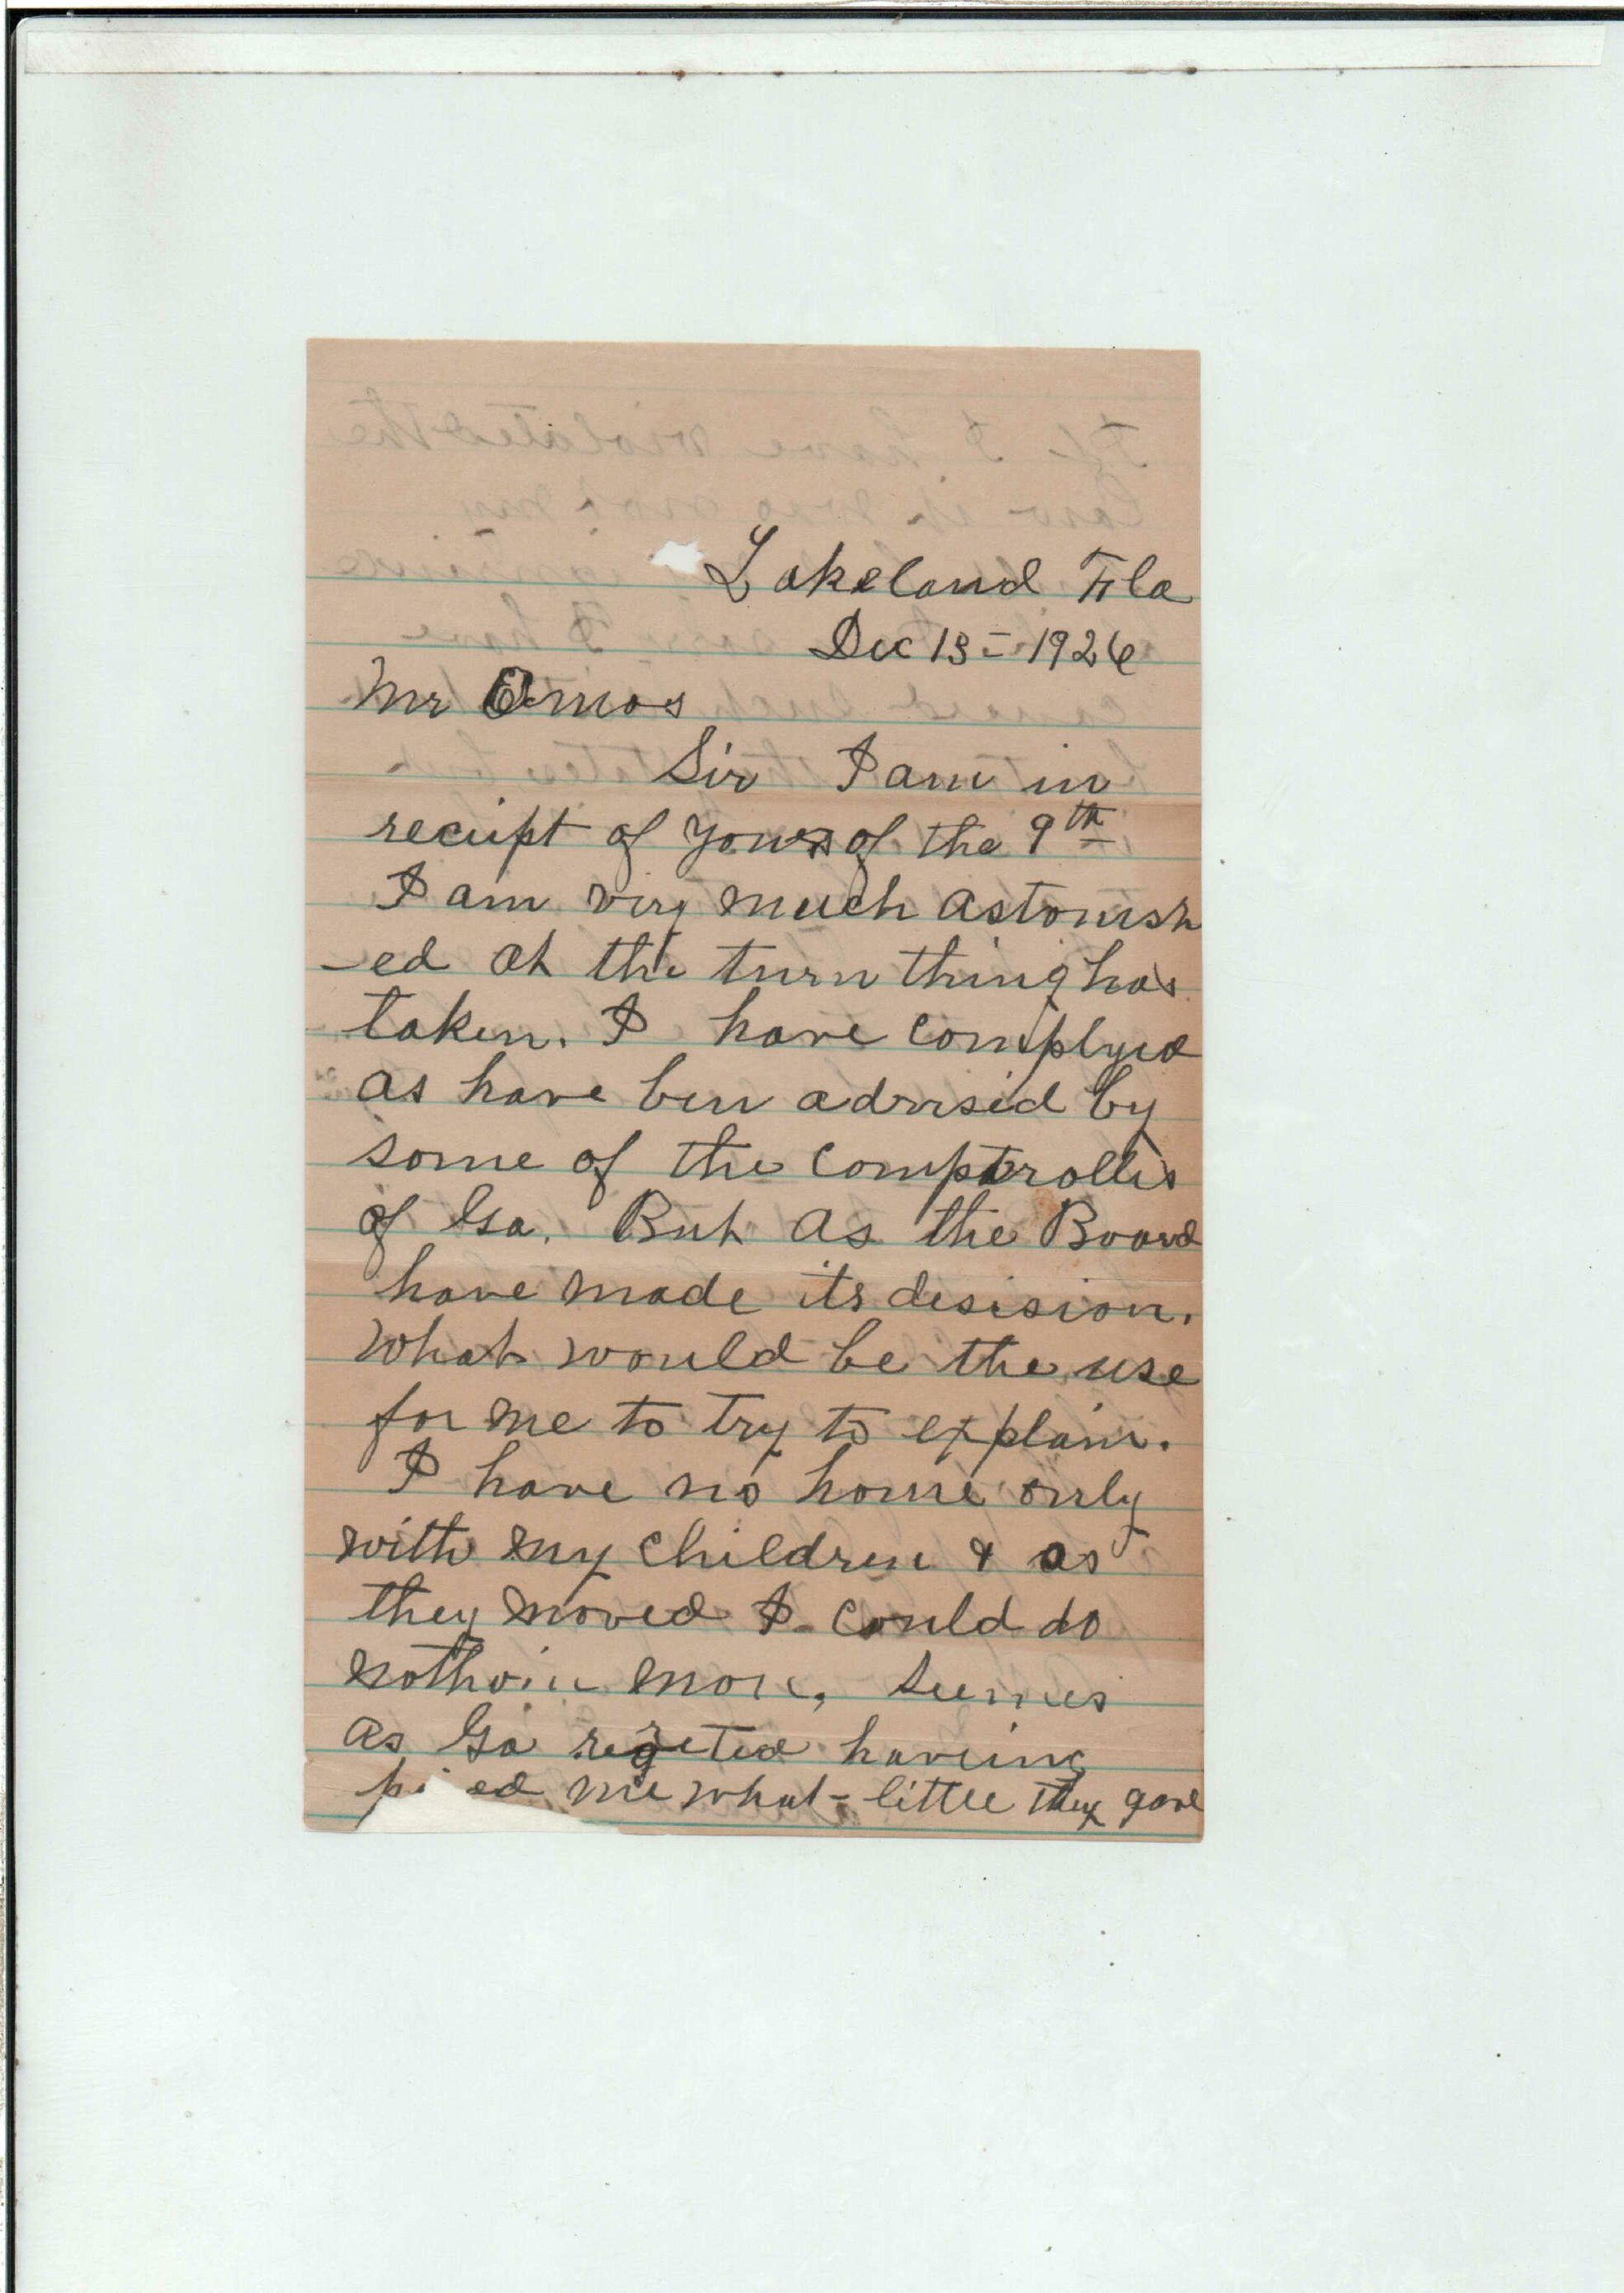 Lakeland Fla
Dec 13 - 1926
Mr Amos
Sir I am in
reciept of yours of the 9th
I am very much astonish
-ed at the turn thing has
taken. I have complyed
as have ben advised by
some of the comptrollis
of Ga. But as the Board
have made its desision.
What would be the use
for me to try to explain.
I have no home only
with my children & as
they moved I could do
nothin more. Seemes
as Ga regreted haveing
me what little they gave